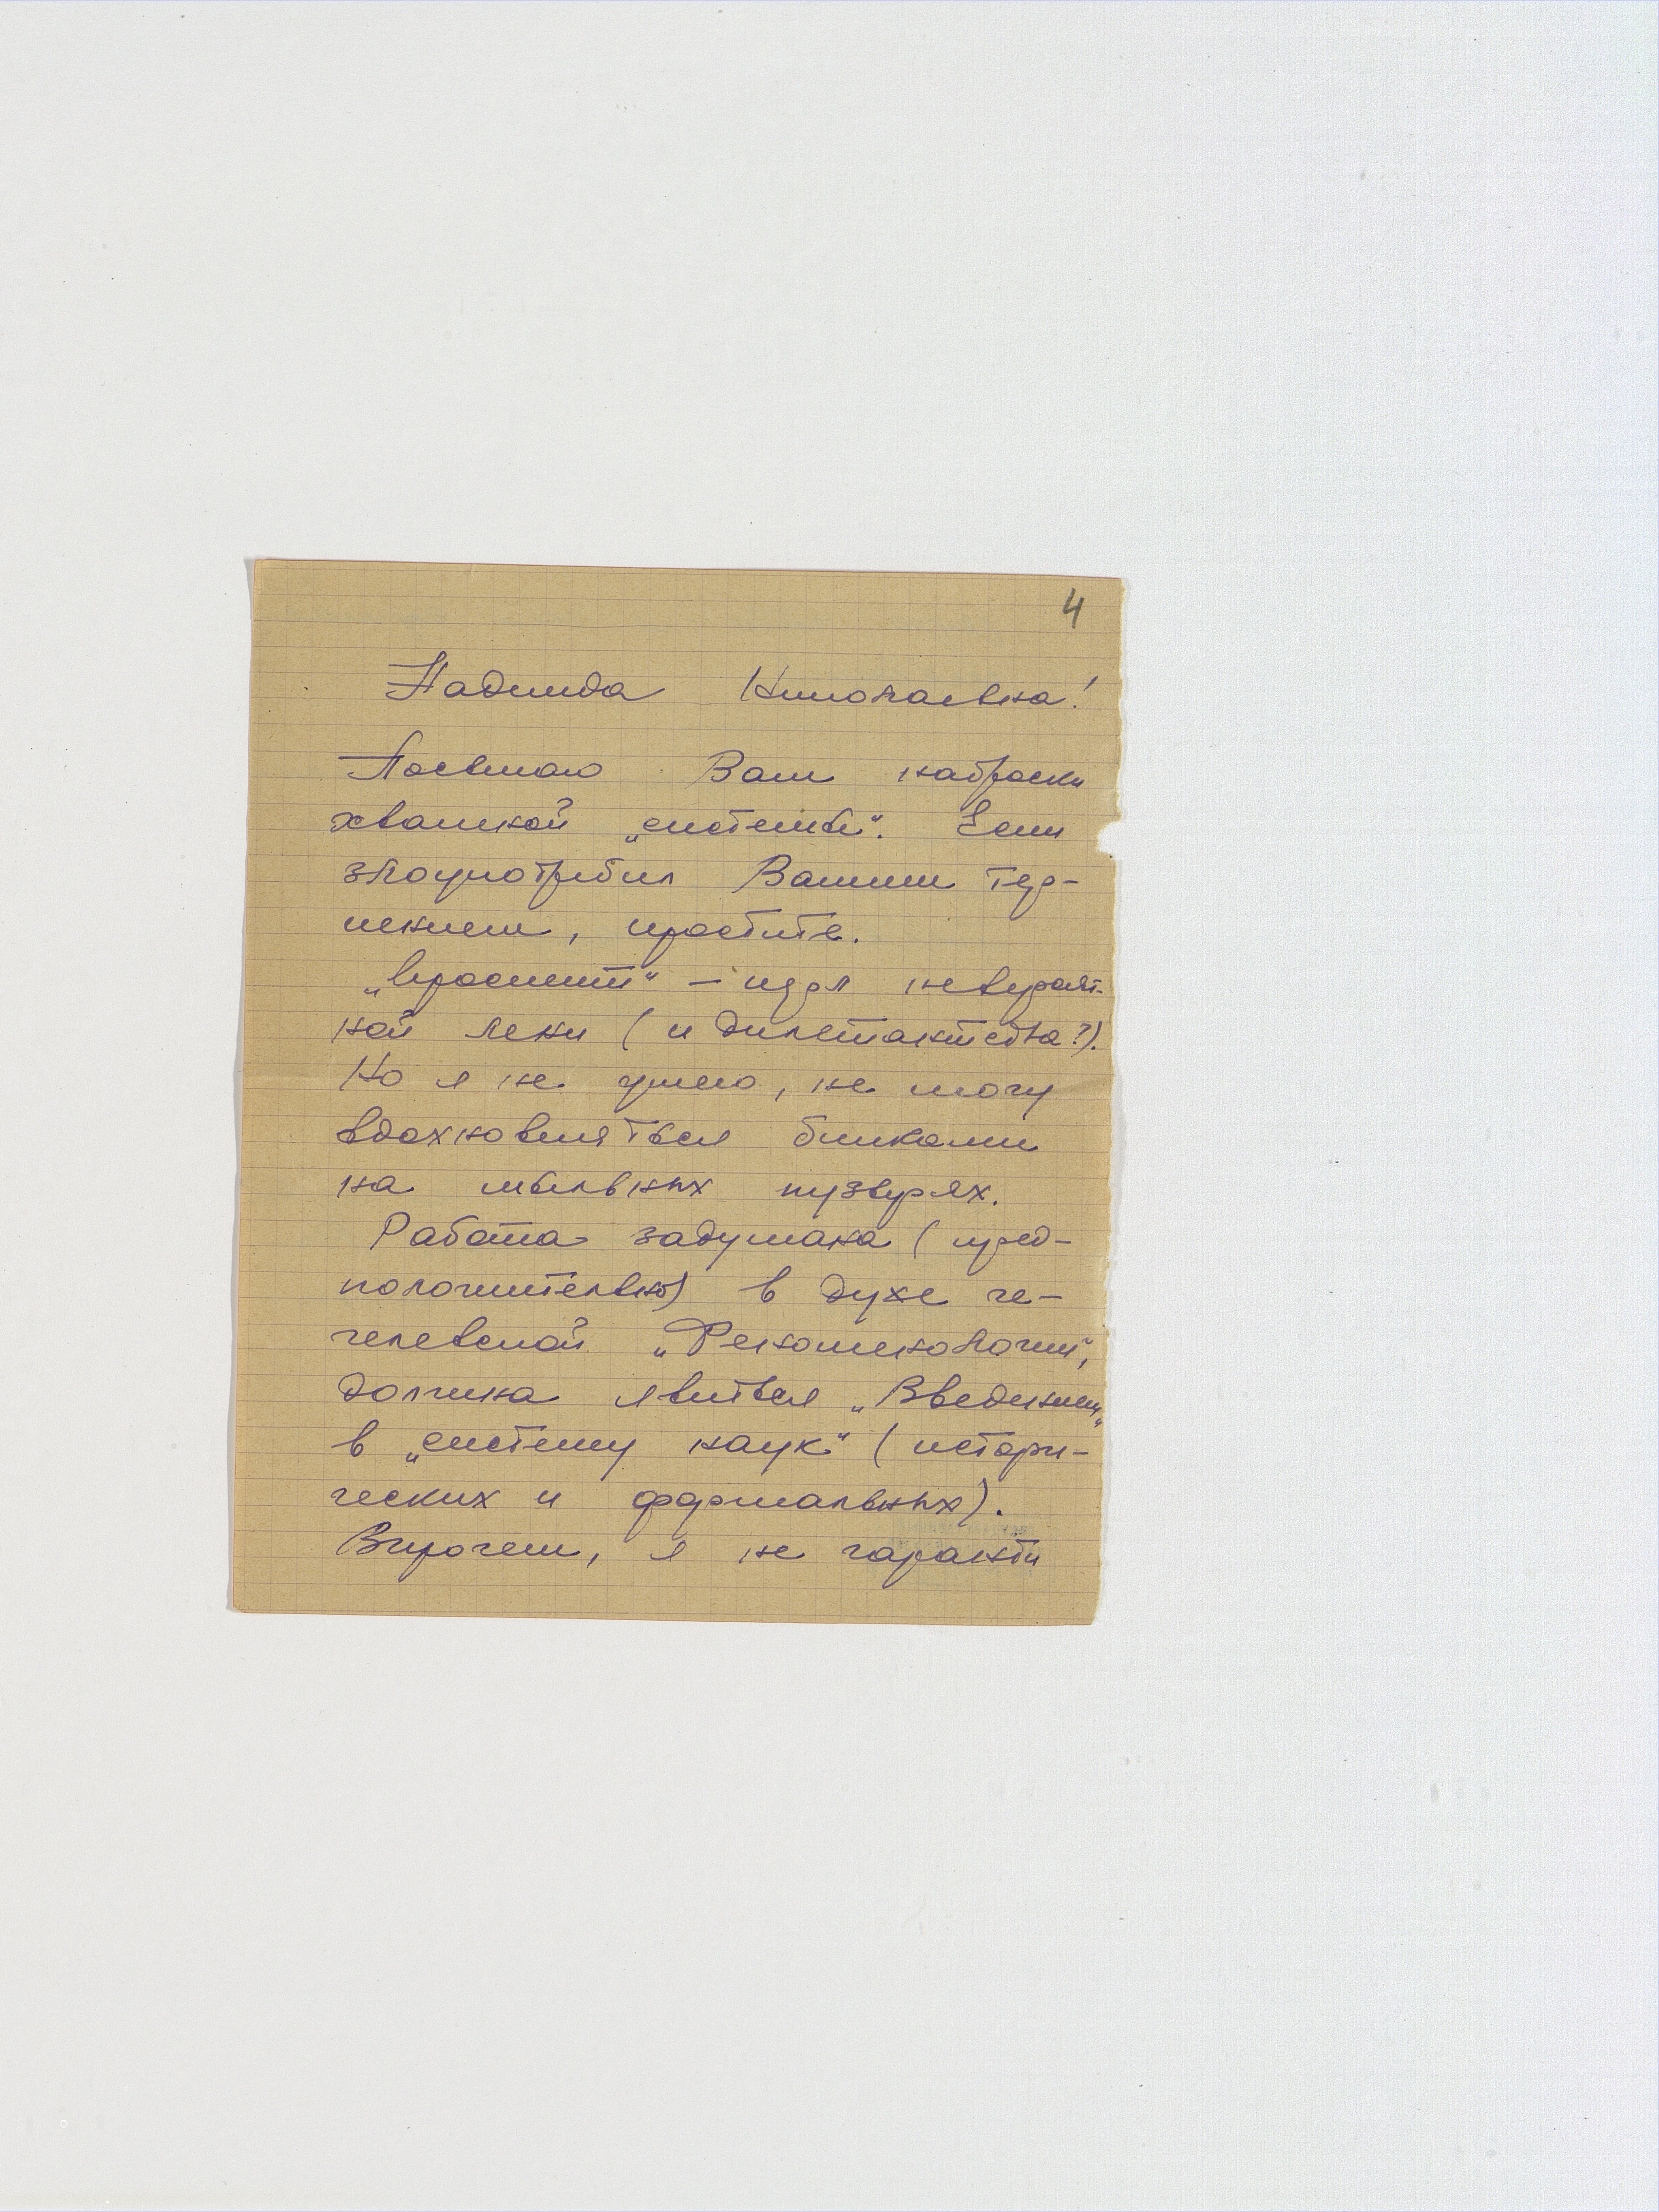 4
Надежда Николаевна!
Посылаю Вам наброски
хваткой „системы“. Если
злоупотребил Вашим тер-
пением, простите.
– идол невероят-
ной лени (и дилетантства?).
Но я не умею, не могу
вдохновляться бликами
на мыльных пузырях.
Работа задумана (пред-
положительно) в духе ге-
гелевской „Феноменологии“,
должна явиться „Введением“
в „систему наук“ (истори-
ческих и формальных).
Впрочем, я не гаранти